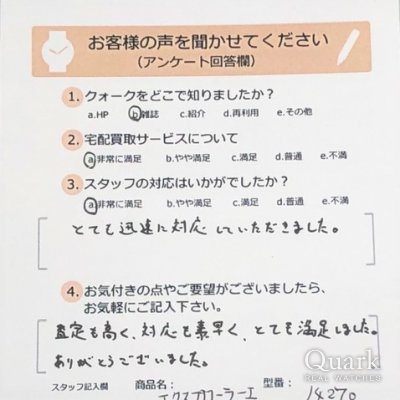 お客様の声を聞かせてください
(アンケート回答欄)
1. クォークをどこで知りましたか?
a.HP b.雑誌 c.紹介 d.再利用 e.その他
2. 宅配買取サービスについて
a.非常に満足 b.やや満足 c.満足 d.普通 e.不満
3. スタッフの対応はいかがでしたか?
a.非常に満足 b.やや満足 c.満足 d.普通 e.不満
とても迅速に対応していただきました。
4. お気付きの点やご要望がございましたら、
お気軽にご記入下さい。
査定も高く、対応も素早く、とても満足しました。
ありがとうございました。
Quark
REAL WATCHES
スタッフ記入欄 商品名: 型番:
エクスプローラーI 14270